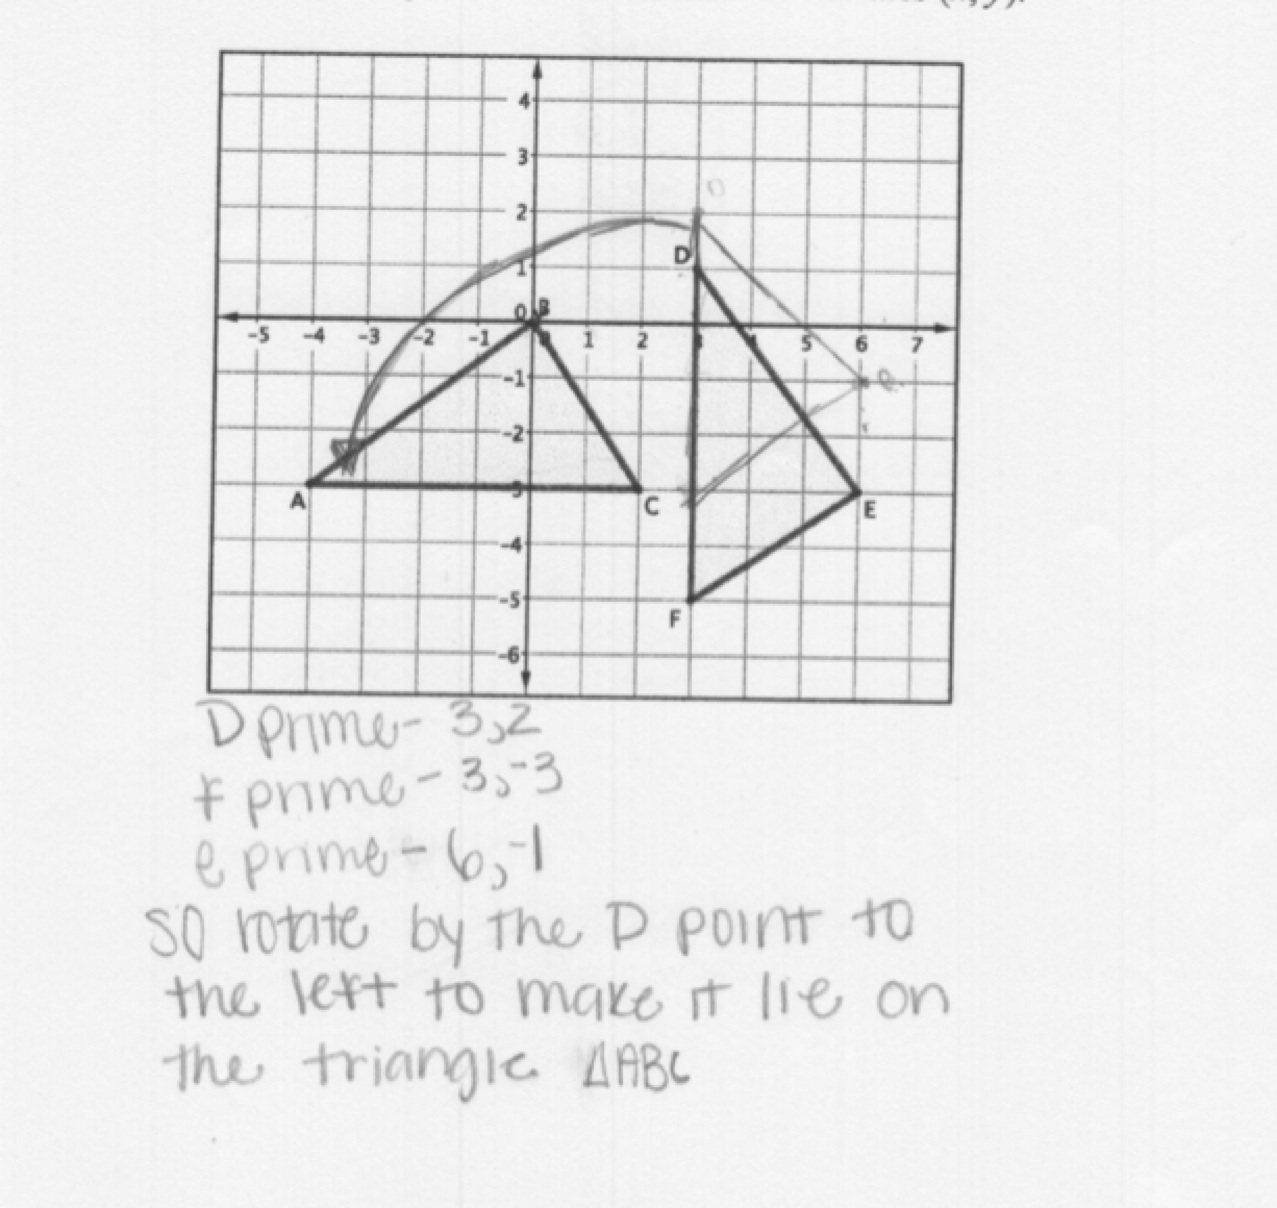 4
3
2
D
D
1
0 B
-5 -4 -3 -2 -1 0 1 2 3 4 5 6 7
-1 e
-2
A -3 C E
-4
-5
F
-6
D prime - 3,2
f prime - 3,-3
e prime - 6,-1
so rotate by the D point to
the left to make it lie on
the triangle ΔABC